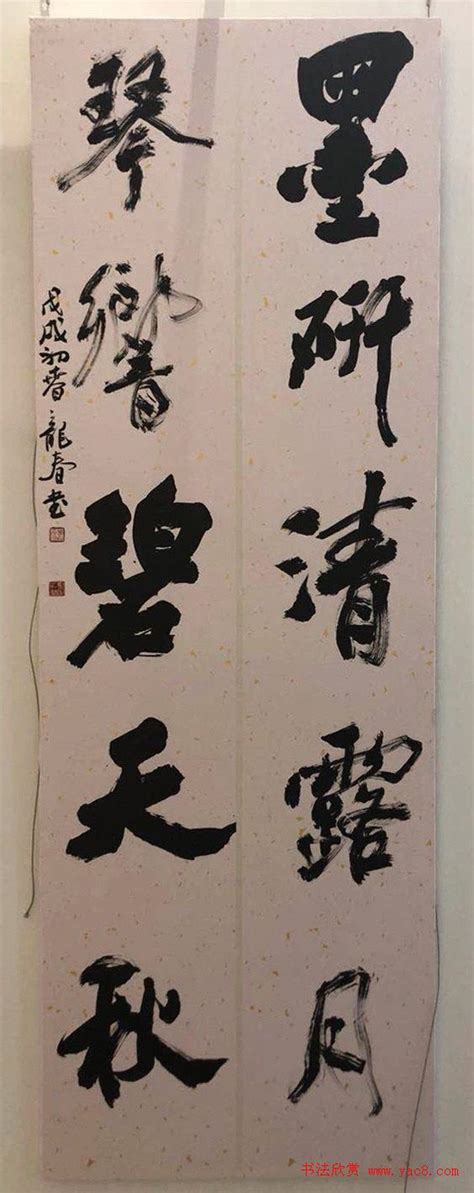 墨研清露月
琴響碧天秋
戊戌初春龍春书
书法欣赏 www.yac8.com